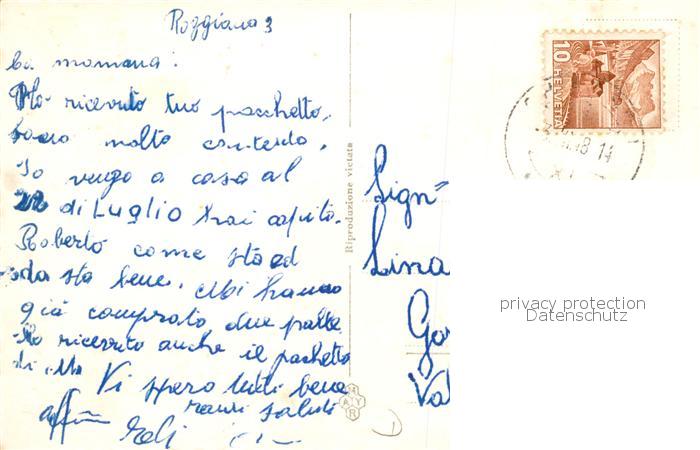 Roggiana 3
Ca mamma!
Ho ricevuto tuo pacchetto,
molto contenta.
Io vengo a casa al
di Luglio hai capito.
Roberto come sta ed
sta bene. Mi hanno
già comprato due palle
Ho ricevuto anche il pachetto
di Vi spero tutti bene
saluti
Riproduzione vietata
10
HELVETIA
48 14
Sign=
Lina
Go
Va
privacy protection
Datenschutz